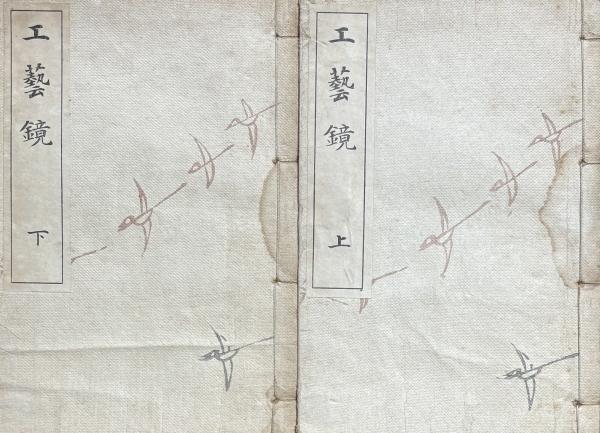 工藝鏡
上
工藝鏡
下